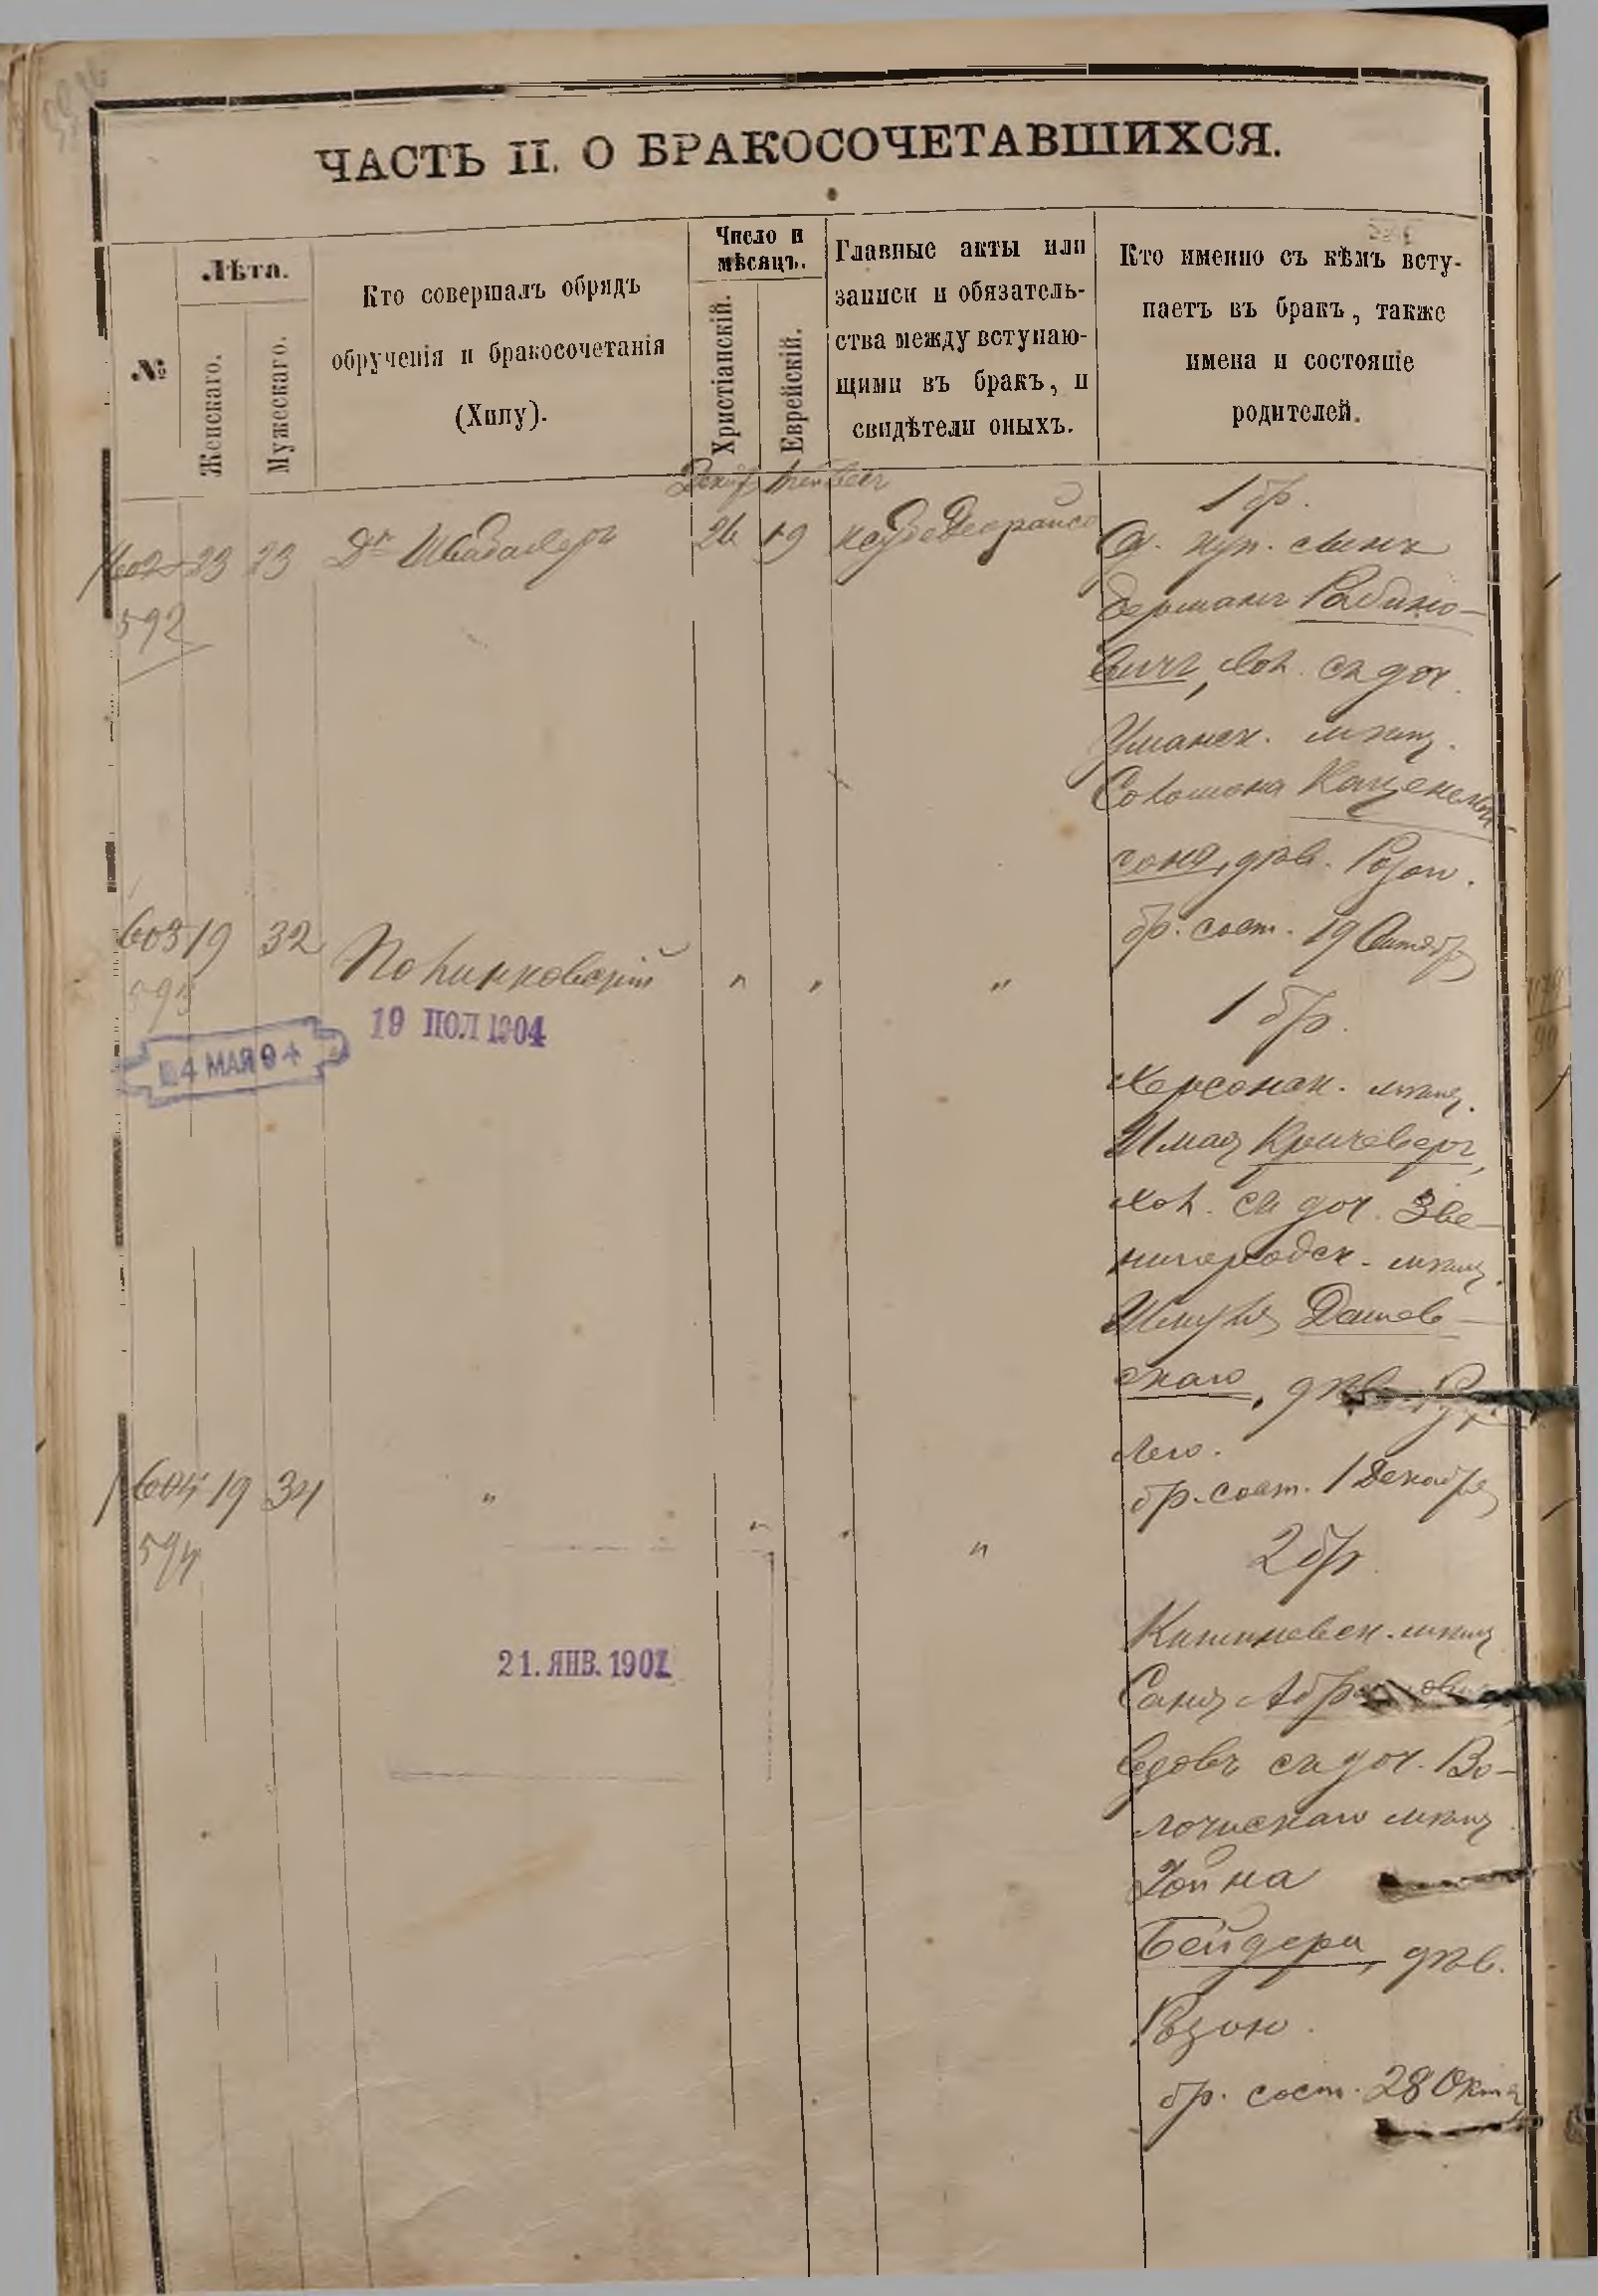 ЧАСТЬ II. О БРАКОСОЧЕТАВШИХСЯ.
№
Лѣта.
Женскаго.
Мужескаго.
Кто совершалъ обрядъ
обрученія и бракосочетанія
(Хипу).
Число и
мѣсяцъ.
Христіанскій.
Еврейскій.
Главные акты или
записи и обязатель-
ства между вступаю-
щими въ бракъ, и
свидѣтели оныхъ.
Кто именно съ кѣмъ всту-
паетъ въ бракъ, также
имена и состояніе
родителей.
602 23 23 Др Швабахеръ 26 19
592
1 бр.
Од. куп. сынъ
Германъ Рабино-
вичъ, хол. съ доч.
Уманск. мѣщ.
Соломона Каценелен
сона, дѣв. Розою.
бр. сост. 19
603 19 32 Полинковскій " " "
593
19 ПОЛ 1904
24 МАЯ 94
1 бр.
Херсонск. мѣщ.
Кричеверъ,
хол. съ доч. Зве-
нигородск. мѣщ.
Шмуля Дашев-
скаго, дѣв.
лею.
бр. сост. 1 Декабря
604 19 34 " " " "
594
21. ЯНВ. 1901
2 бр.
Кишиневск. мѣщ
вдовъ съ доч. Во-
лочискаго мѣщ.
Хоина
Бейдера, дѣв.
бр. сост. 28 Октя